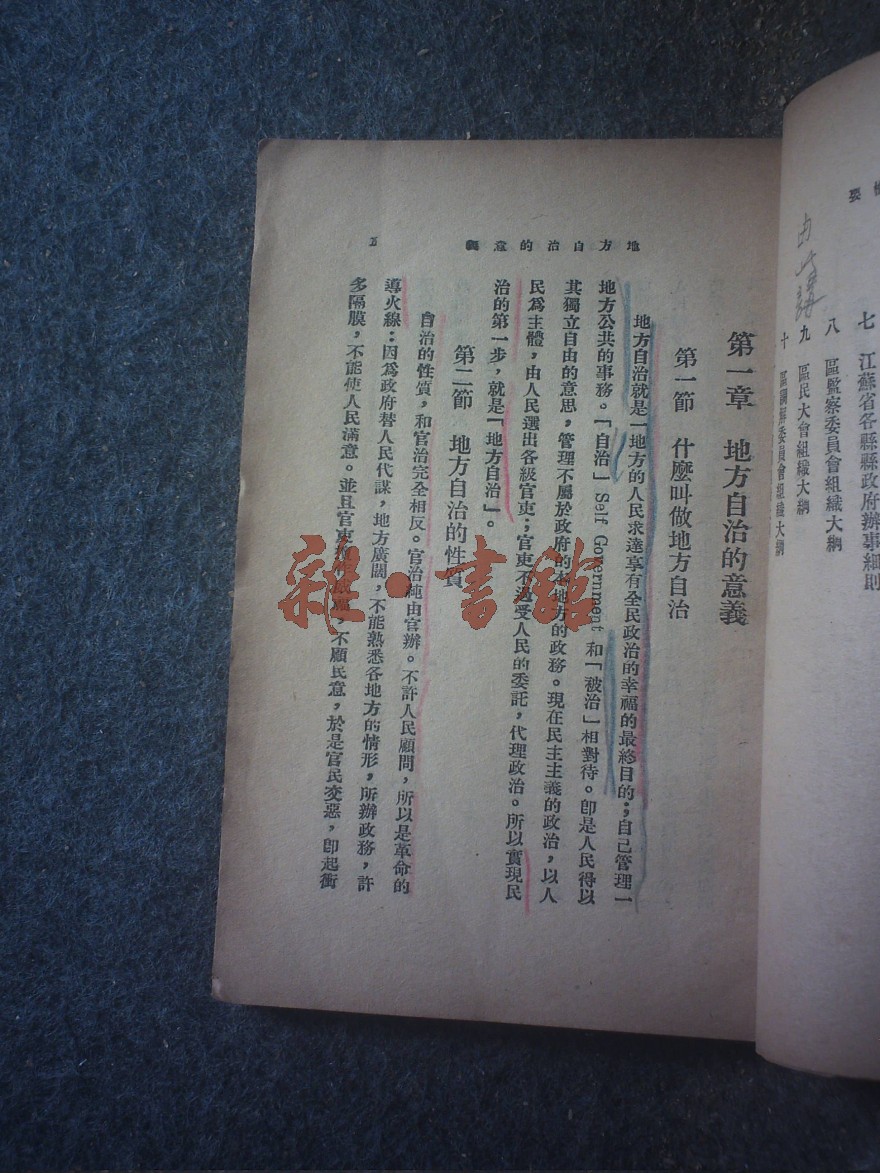 要
由此講
七　江蘇省各縣縣政府辦事細則
八　區監察委員會組織大綱
九　區民大會組織大綱
十　區調解委員會組織大綱
地方自治的意義
五
第一章　地方自治的意義
第一節　什麼叫做地方自治
地方自治就是一地方的人民求達享有全民政治的幸福的最終目的；自己管理一
地方公共的事務。「自治」Self Government 和「被治」相對待。卽是人民得以
其獨立自由的意思，管理不屬於政府的本地方的政務。現在民主主義的政治，以人
民爲主體，由人民選出各級官吏；官吏不過受人民的委託，代理政治。所以實現民
治的第一步，就是「地方自治」。
第二節　地方自治的性質
自治的性質，和官治完全相反。官治純由官辦。不許人民顧問，所以是革命的
導火線：因爲政府替人民代謀，地方廣闊，不能熟悉各地方的情形，所辦政務，許
多隔膜，不能使人民滿意。並且官吏威福，不顧民意，於是官民交惡，卽起衝
雜·書館